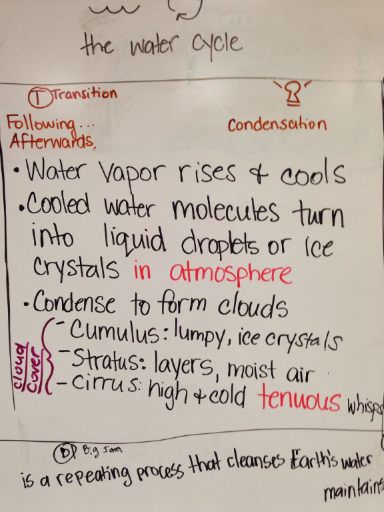 the water cycle
T Transition
Following...
Afterwards,
Condensation
• Water vapor rises & cools
• Cooled water molecules turn
into liquid droplets or ice
crystals in atmosphere
• Condense to form clouds
cloud
cover
- Cumulus: lumpy, ice crystals
- Stratus: layers, moist air
- Cirrus: high & cold tenuous
is a repeating process that cleanses Earth's water
maintains